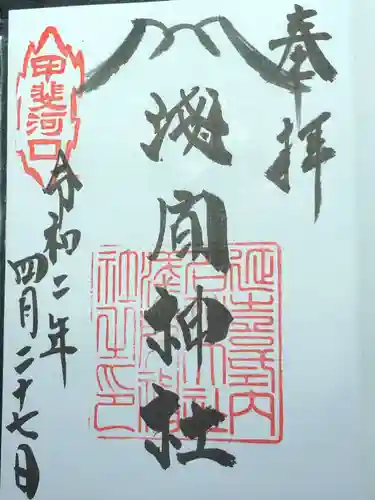 奉拝
浅間神社
延喜式内
甲斐河口
令和二年
四月二十七日